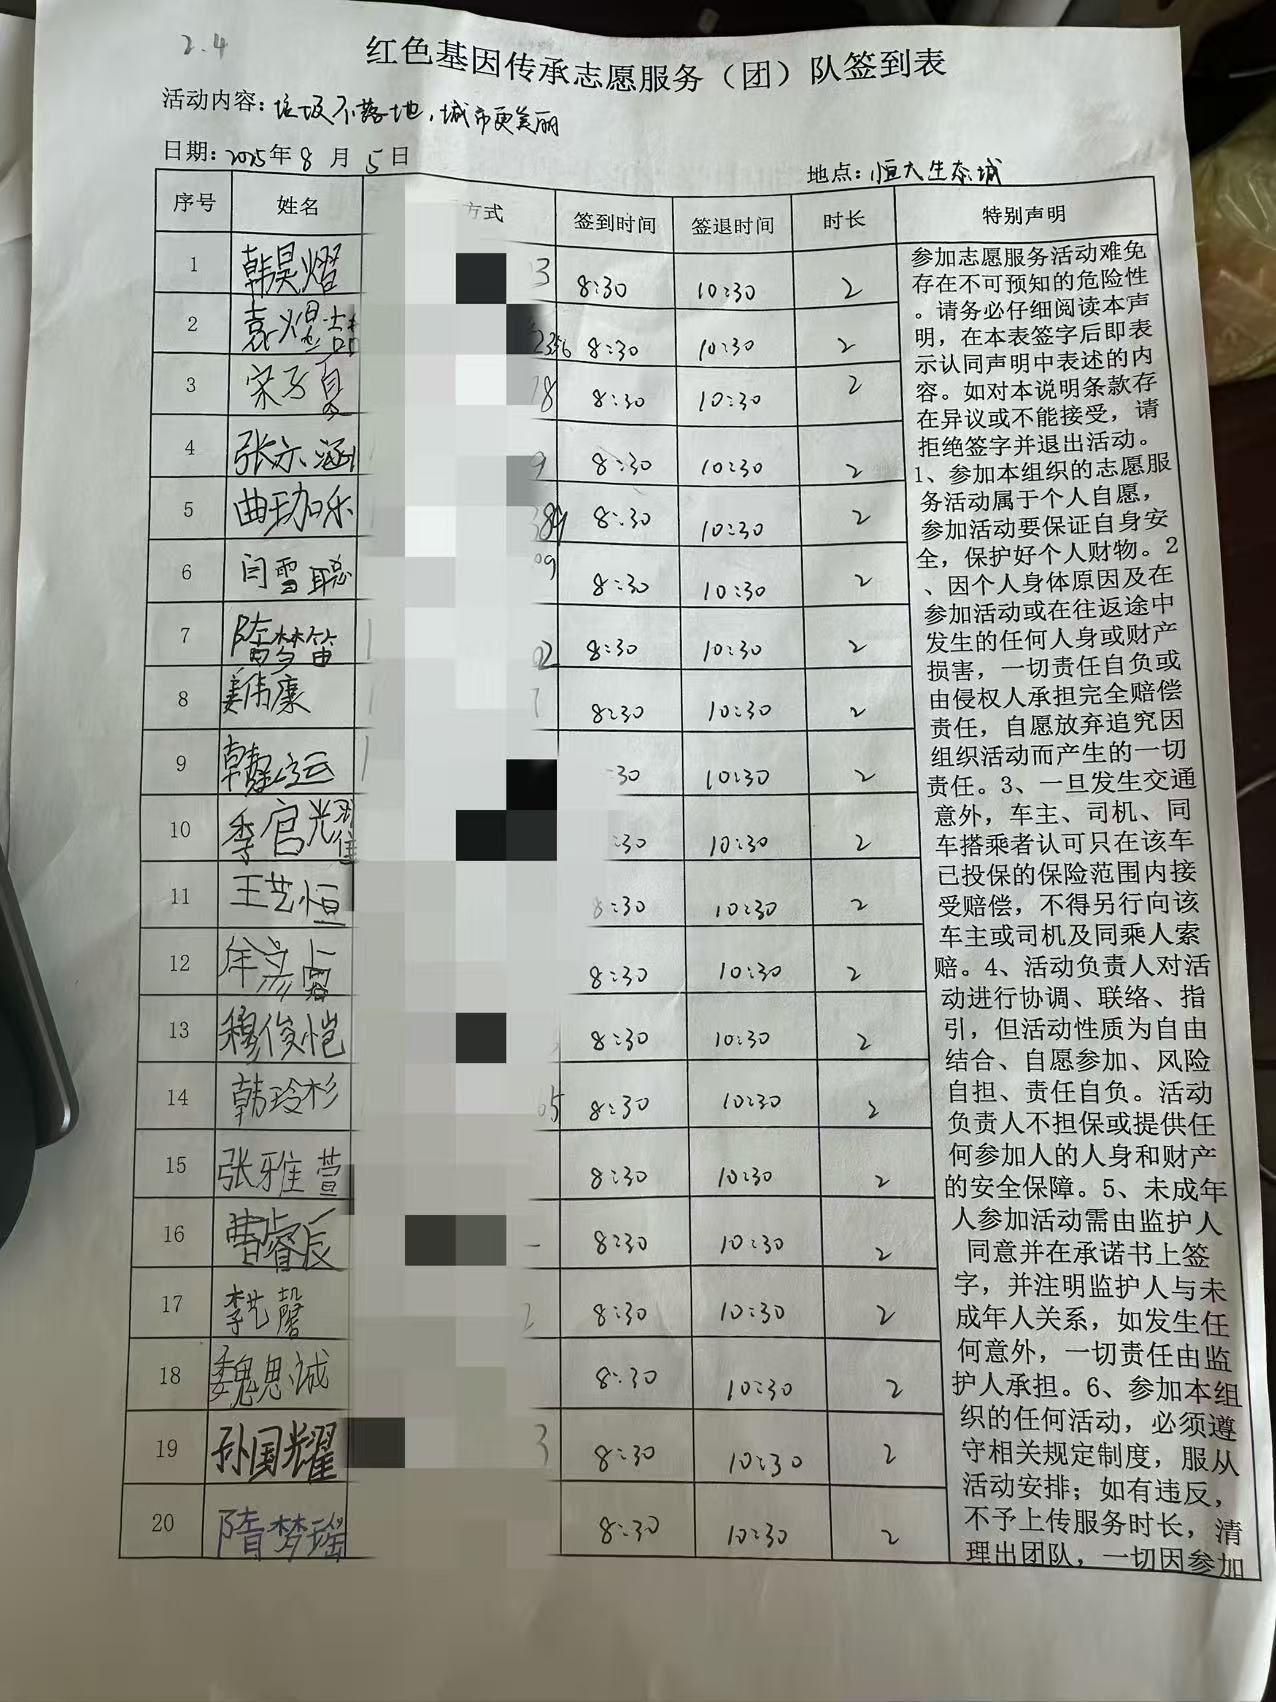 2.4
红色基因传承志愿服务（团）队签到表
活动内容：垃圾不落地，城市更美丽
日期：2025年8月5日 地点：恒大生态城
序号 姓名 方式 签到时间 签退时间 时长 特别声明
1 韩昊熠 3 8:30 10:30 2
2 袁煜喆 236 8:30 10:30 2
3 宋子夏 78 8:30 10:30 2
4 张亦涵 9 8:30 10:30 2
5 曲珈乐 8:30 10:30 2
6 闫雪聪 09 8:30 10:30 2
7 隋梦笛 02 8:30 10:30 2
8 姜伟廉 8:30 10:30 2
9 韩运 :30 10:30 2
10 季官光 :30 10:30 2
11 王艺恒 8:30 10:30 2
12 徐 8:30 10:30 2
13 穆俊恺 8:30 10:30 2
14 韩玲杉 05 8:30 10:30 2
15 张雅萱 8:30 10:30 2
16 曹睿辰 8:30 10:30 2
17 李艺馨 2 8:30 10:30 2
18 魏思诚 8:30 10:30 2
19 孙国耀 3 8:30 10:30 2
20 隋梦瑶 8:30 10:30 2
参加志愿服务活动难免
存在不可预知的危险性
。请务必仔细阅读本声
明，在本表签字后即表
示认同声明中表述的内
容。如对本说明条款存
在异议或不能接受，请
拒绝签字并退出活动。
1、参加本组织的志愿服
务活动属于个人自愿，
参加活动要保证自身安
全，保护好个人财物。2
、因个人身体原因及在
参加活动或在往返途中
发生的任何人身或财产
损害，一切责任自负或
由侵权人承担完全赔偿
责任，自愿放弃追究因
组织活动而产生的一切
责任。3、一旦发生交通
意外，车主、司机、同
车搭乘者认可只在该车
已投保的保险范围内接
受赔偿，不得另行向该
车主或司机及同乘人索
赔。4、活动负责人对活
动进行协调、联络、指
引，但活动性质为自由
结合、自愿参加、风险
自担、责任自负。活动
负责人不担保或提供任
何参加人的人身和财产
的安全保障。5、未成年
人参加活动需由监护人
同意并在承诺书上签
字，并注明监护人与未
成年人关系，如发生任
何意外，一切责任由监
护人承担。6、参加本组
织的任何活动，必须遵
守相关规定制度，服从
活动安排；如有违反，
不予上传服务时长，清
理出团队，一切因参加